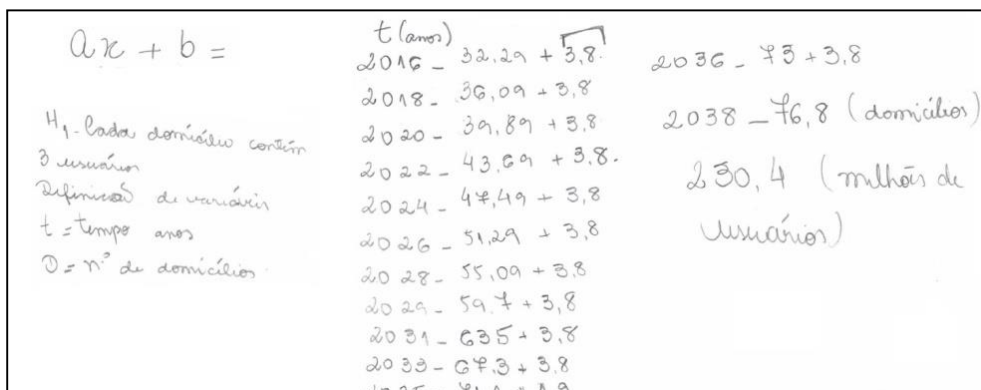 ax + b =
H1 - Cada domicílio contém
3 usuários
Definição de variáveis
t = tempo anos
D = nº de domicílios
t (anos)
2016 - 32,29 + 3,8.
2018 - 36,09 + 3,8
2020 - 39,89 + 3,8
2022 - 43,69 + 3,8.
2024 - 47,49 + 3,8
2026 - 51,29 + 3,8
2028 - 55,09 + 3,8
2029 - 59,7 + 3,8
2031 - 635 + 3,8
2033 - 67,3 + 3,8
2036 - 73 + 3,8
2038 - 76,8 (domicílios)
230,4 (milhões de
usuários)